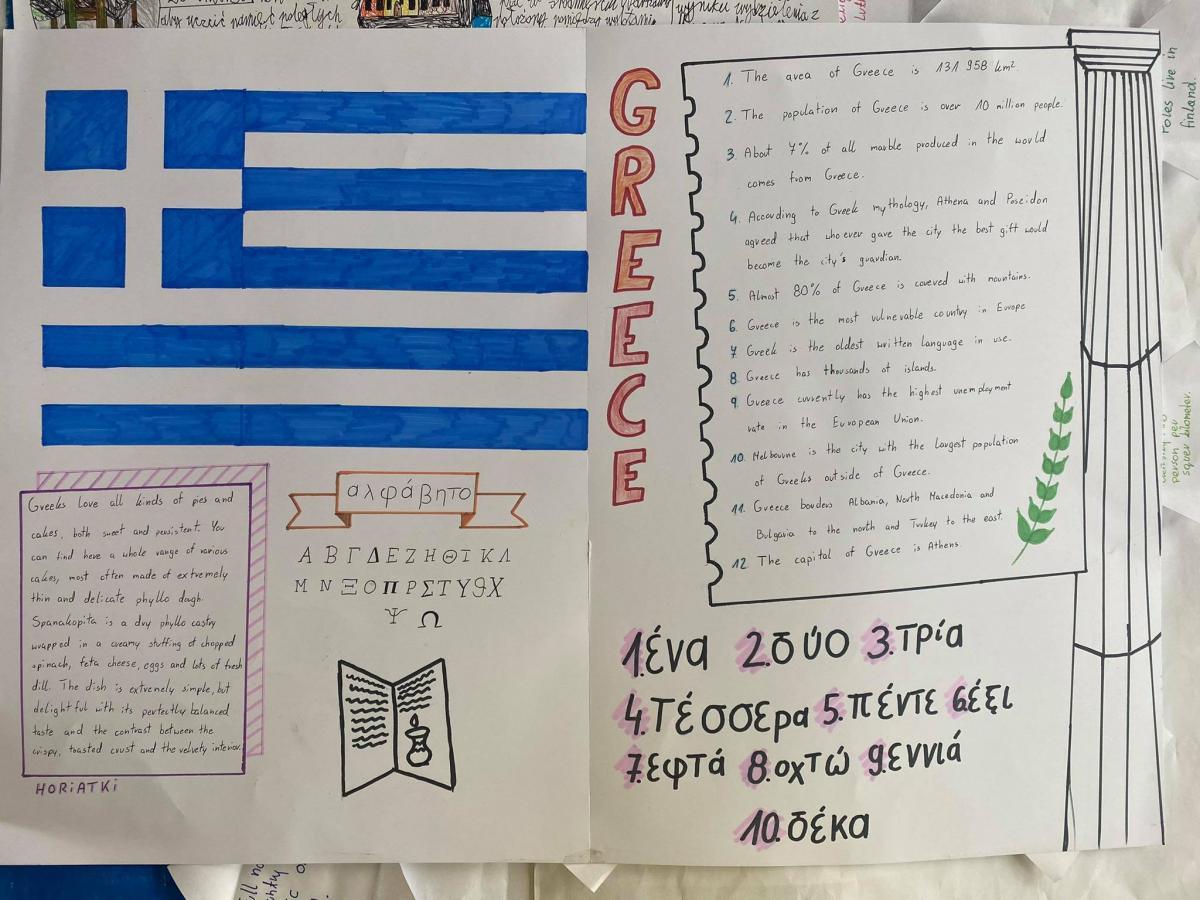 aby uczcić pamięć poległych
GREECE
1. The area of Greece is 131 958 km².
2. The population of Greece is over 10 million people.
3. About 7% of all marble produced in the world
comes from Greece.
4. According to Greek mythology, Athena and Poseidon
agreed that who ever gave the city the best gift would
become the city's guardian.
5. Almost 80% of Greece is covered with mountains.
6. Greece is the most vulnevable country in Europe
7 Greek is the oldest written language in use.
8. Greece has thousands of islands.
9 Greece currently has the highest unemployment
rate in the European Union.
10. Melbourne is the city with the largest population
of Greeks outside of Greece.
11. Greece borders Albania, North Macedonia and
Bulgaria to the north and Turkey to the east.
12. The capital of Greece is Athens.
Greeks love all kinds of pies and
cakes, both sweet and persistent. You
can find here a whole range of various
cakes, most often made of extremely
thin and delicate phyllo dough.
Spanakopita is a dry phyllo castry
wrapped in a creamy stuffing of chopped
spinach, feta cheese, eggs and lots of fresh
dill. The dish is extremely simple, but
delightful with its perfectly balanced
taste and the contrast between the
crispy, toasted crust and the velvety interior.
HORiATKi
αλφάβητο
Α Β Γ Δ Ε Ζ Η Θ Ι Κ Λ
Μ Ν Ξ Ο Π Ρ Σ Τ Υ Φ Χ
Ψ Ω
1.ένα 2.δύο 3.τρία
4.τέσσερα 5.πέντε 6.έξι
7.εφτά 8.οχτώ 9.εννιά
10.δέκα
roles live in
finland.
person per
squer kilometer.